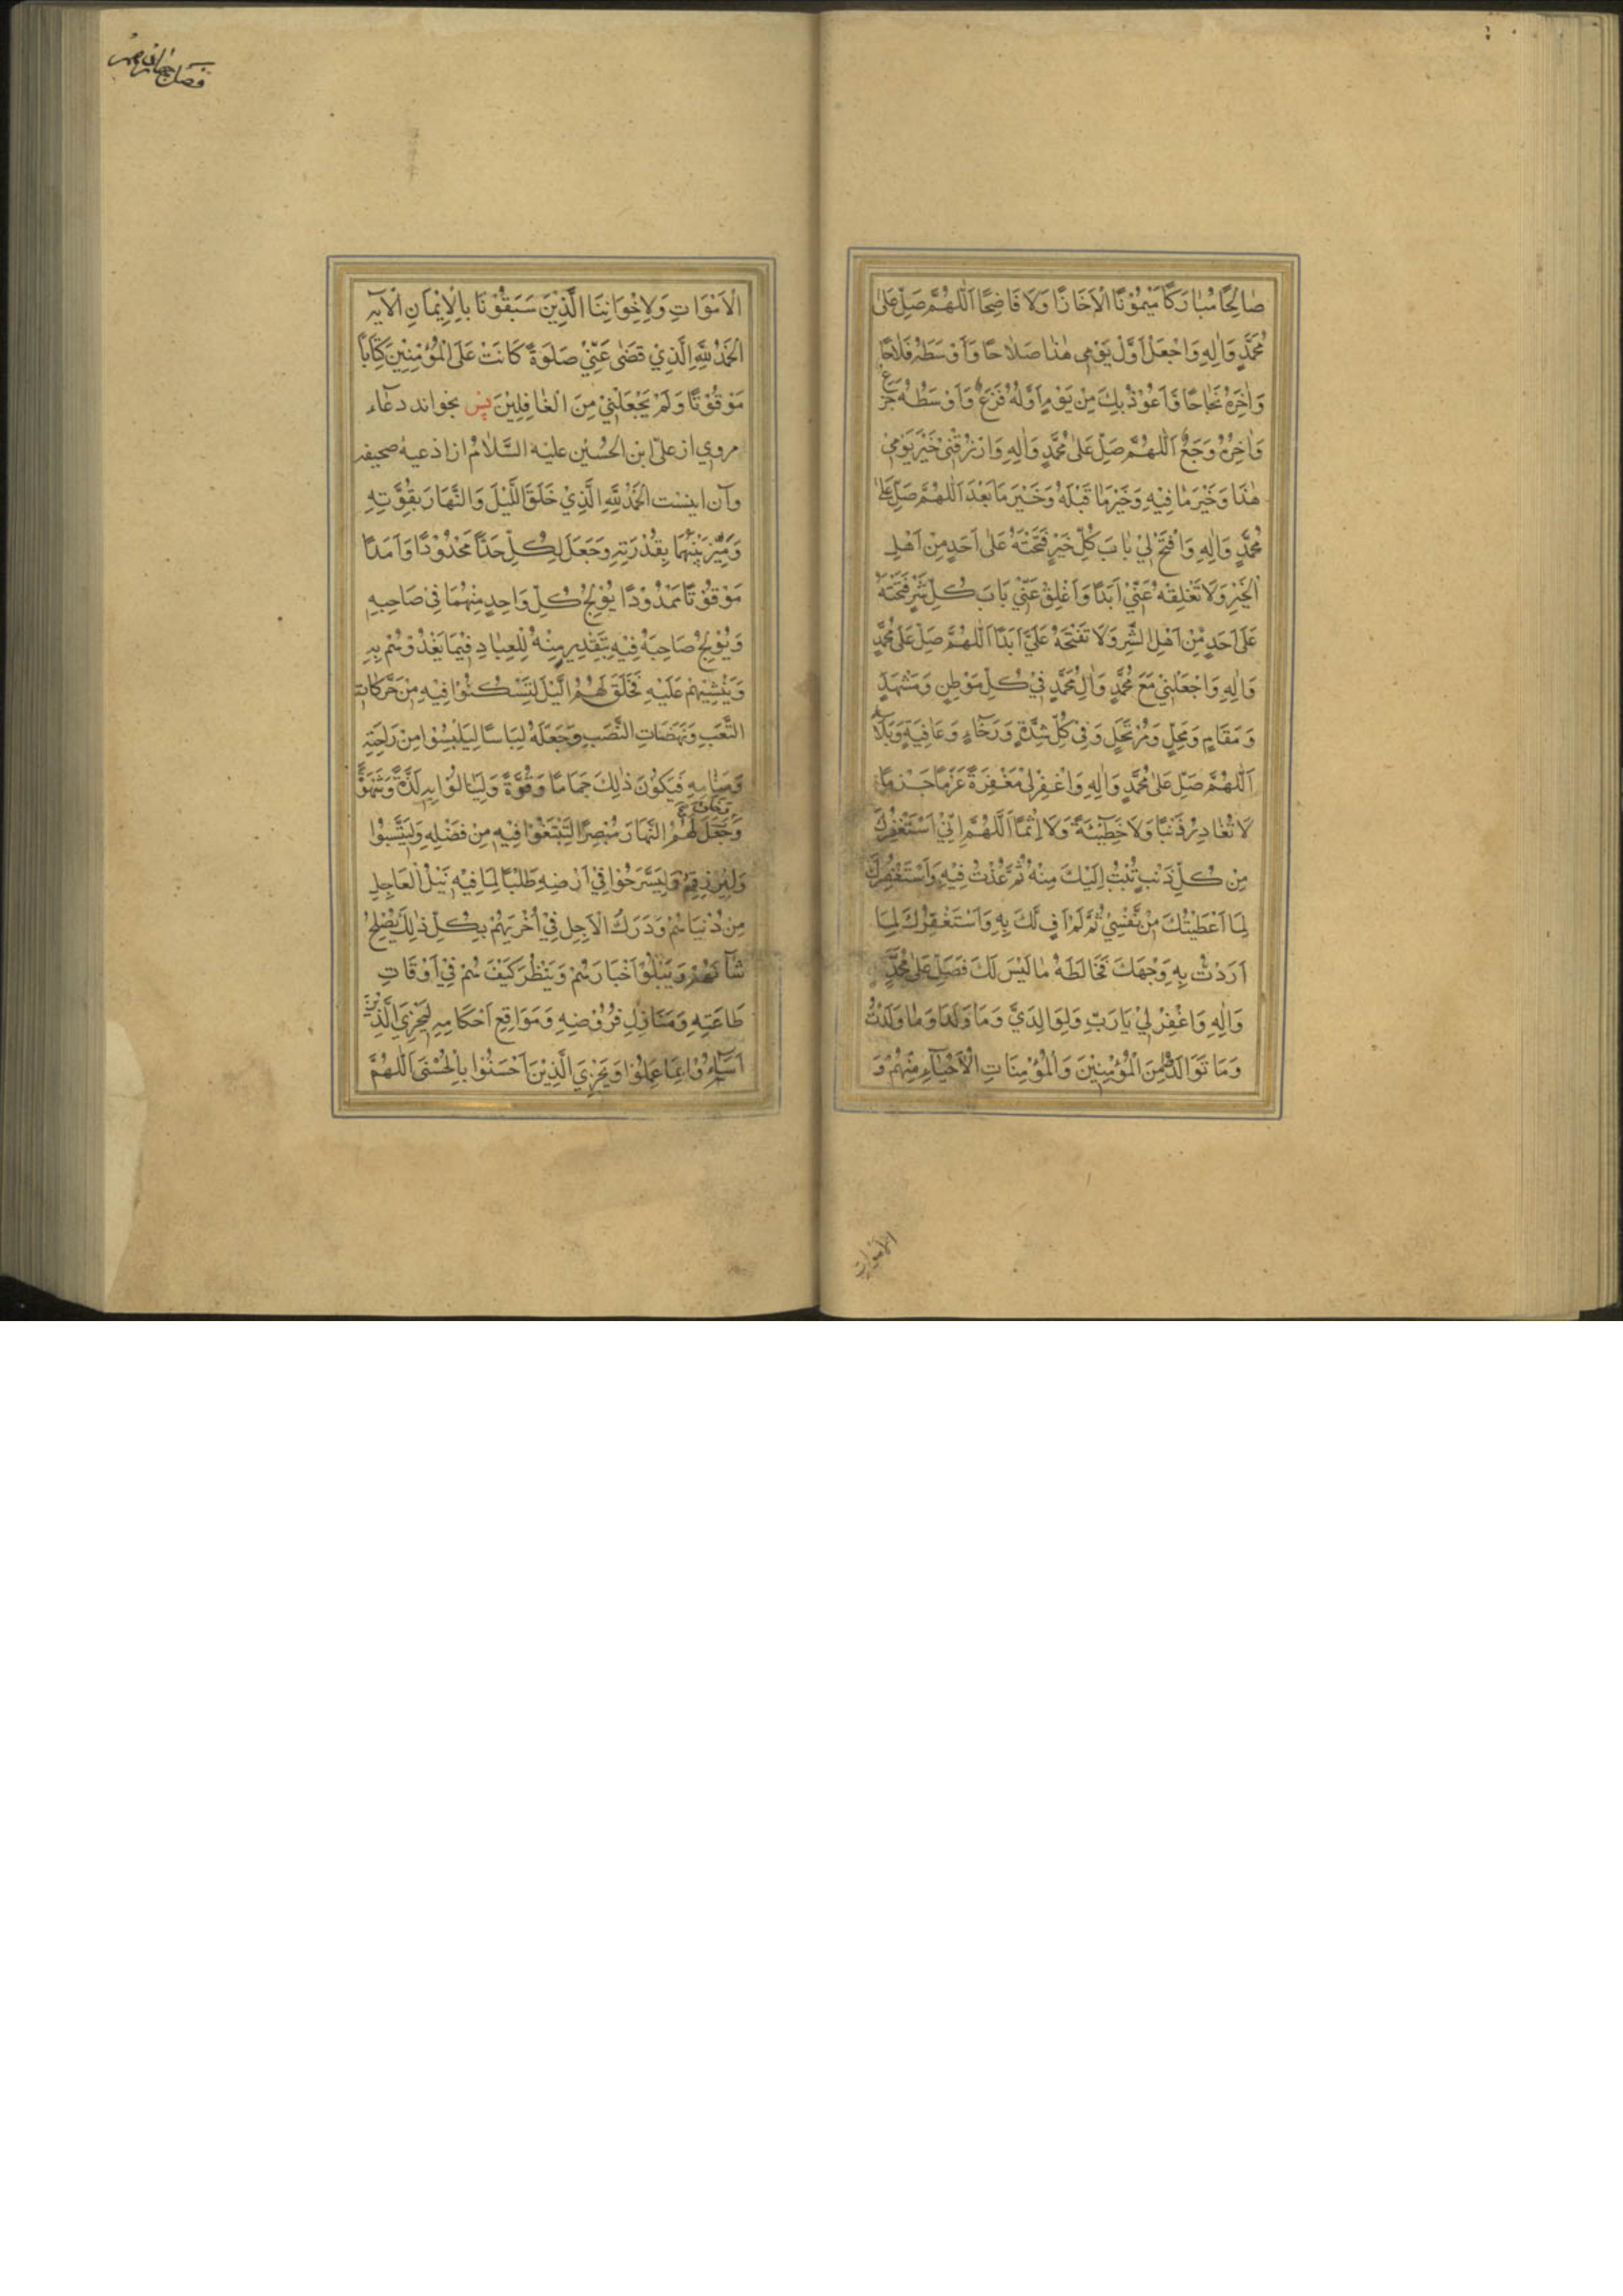 صَالِحًا مُبَارَكًا مَيْمُوْنًا لَا خَازِنًا وَلَا فَاضِحًا اَللّٰهُمَّ صَلِّ عَلىٰ
مُحَمَّدٍ وَاٰلِهِ وَاجْعَلْ اَوَّلَ يَوْمِي هٰذَا صَلَاحًا وَاَوْسَطَهُ فَلَاحًا
وَاٰخِرَهُ نَجَاحًا وَاَعُوْذُ بِكَ مِنْ يَوْمٍ اَوَّلُهُ فَزَعٌ وَاَوْسَطُهُ جَزَعٌ
وَاٰخِرُهُ وَجَعٌ اَللّٰهُمَّ صَلِّ عَلىٰ مُحَمَّدٍ وَاٰلِهِ وَارْزُقْنِيْ خَيْرَ يَوْمِيْ
هٰذَا وَخَيْرَ مَا فِيْهِ وَخَيْرَ مَا قَبْلَهُ وَخَيْرَ مَا بَعْدَ اَللّٰهُمَّ صَلِّ عَلىٰ
مُحَمَّدٍ وَاٰلِهِ وَافْتَحْ لِيْ بَابَ كُلِّ خَيْرٍ فَتَحْتَهُ عَلىٰ اَحَدٍ مِنْ اَهْلِ
الْخَيْرِ وَلَا تَغْلِقْهُ عَنِّيْ اَبَدًا وَاَغْلِقْ عَنِّيْ بَابَ كُلِّ شَرٍّ فَتَحْتَهُ
عَلىٰ اَحَدٍ مِنْ اَهْلِ الشَّرِّ وَلَا تَفْتَحْهُ عَلَيَّ اَبَدًا اَللّٰهُمَّ صَلِّ عَلىٰ مُحَمَّدٍ
وَاٰلِهِ وَاجْعَلْنِيْ مَعَ مُحَمَّدٍ وَاٰلِ مُحَمَّدٍ فِيْ كُلِّ مَوْطِنٍ وَمَشْهَدٍ
وَمَقَامٍ وَمَحِلٍّ وَمُرْتَحَلٍ وَفِيْ كُلِّ شِدَّةٍ وَرَخَاءٍ وَعَافِيَةٍ وَبَلَاءٍ
اَللّٰهُمَّ صَلِّ عَلىٰ مُحَمَّدٍ وَاٰلِهِ وَاغْفِرْ لِيْ مَغْفِرَةً عَزْمًا جَزْمًا
لَا تُغَادِرُ ذَنْبًا وَلَا خَطِيْئَةً وَلَا اِثْمًا اَللّٰهُمَّ اِنِّيْ اَسْتَغْفِرُكَ
مِنْ كُلِّ ذَنْبٍ تُبْتُ اِلَيْكَ مِنْهُ ثُمَّ عُذْتُ فِيْهِ وَاَسْتَغْفِرُكَ
لِمَا اَعْطَيْتُكَ مِنْ نَفْسِيْ ثُمَّ لَمْ اَفِ لَكَ بِهِ وَاَسْتَغْفِرُكَ لِمَا
اَرَدْتُ بِهِ وَجْهَكَ فَخَالَطَهُ مَا لَيْسَ لَكَ فَصَلِّ عَلىٰ مُحَمَّدٍ
وَاٰلِهِ وَاغْفِرْ لِيْ يَا رَبِّ وَلِوَالِدَيَّ وَمَا وَلَدَا وَمَا وَلَدْتُ
وَمَا تَوَالَدُوْا مِنَ الْمُؤْمِنِيْنَ وَالْمُؤْمِنَاتِ الْاَحْيَاءِ مِنْهُمْ وَ
الاموات
الْاَمْوَاتِ وَلِاِخْوَانِنَا الَّذِيْنَ سَبَقُوْنَا بِالْاِيْمَانِ الْاٰيه
اَلْحَمْدُ لِلّٰهِ الَّذِيْ قَضٰى عَنِّيْ صَلٰوةً كَانَتْ عَلَى الْمُؤْمِنِيْنَ كِتَابًا
مَوْقُوْتًا وَلَمْ يَجْعَلْنِيْ مِنَ الْغَافِلِيْنَ پس بخواند دعاء
مروي از على ابن الحُسَيْن عليه السَّلامُ از ادعيهٔ صحيفه
وآن اينست اَلْحَمْدُ لِلّٰهِ الَّذِيْ خَلَقَ اللَّيْلَ وَالنَّهَارَ بِقُوَّتِهِ
وَمَيَّزَ بَيْنَهُمَا بِقُدْرَتِهِ وَجَعَلَ لِكُلٍّ حَدًّا مَحْدُوْدًا وَاَمَدًا
مَوْقُوْتًا مَمْدُوْدًا يُوْلِجُ كُلَّ وَاحِدٍ مِنْهُمَا فِيْ صَاحِبِهِ
وَيُوْلِجُ صَاحِبَهُ فِيْهِ بِتَقْدِيرٍ مِنْهُ لِلْعِبَادِ فِيْمَا يَغْذُوْهُمْ بِهِ
وَيُنْشِيْهِمْ عَلَيْهِ فَخَلَقَ لَهُمُ الَّيْلَ لِتَسْكُنُوْا فِيْهِ مِنْ حَرَكَاتِ
التَّعَبِ وَنَهَضَاتِ النَّصَبِ وَجَعَلَهُ لِبَاسًا لِيَلْبَسُوْا مِنْ رَاحَتِهِ
وَمَنَامِهِ فَيَكُوْنَ ذٰلِكَ جَمَامًا وَقُوَّةً وَلِيَنَالُوْا بِهِ لَذَّةً وَشَهْوَةً
وَجَعَلَ لَهُمُ النَّهَارَ مُبْصِرًا لِتَبْتَغُوْا فِيْهِ مِنْ فَضْلِهِ وَلِيَتَسَبَّبُوْا
وَلِيَسْرَحُوْا فِيْ اَرْضِهِ طَلَبًا لِمَا فِيْهِ نَيْلُ الْعَاجِلِ
مِنْ دُنْيَاهُمْ وَدَرَكُ الْاٰجِلِ فِيْ اُخْرٰيهُمْ بِكُلِّ ذٰلِكَ يُصْلِحُ
شَأْنَهُمْ وَيَبْلُوْ اَخْبَارَهُمْ وَيَنْظُرُ كَيْفَ هُمْ فِيْ اَوْقَاتِ
طَاعَتِهِ وَمَنَازِلِ فُرُوْضِهِ وَمَوَاقِعِ اَحْكَامِهِ لِيَجْزِيَ الَّذِيْنَ
اَسَاءُوْا بِمَا عَمِلُوْا وَيَجْزِيَ الَّذِيْنَ اَحْسَنُوْا بِالْحُسْنَى اَللّٰهُمَّ